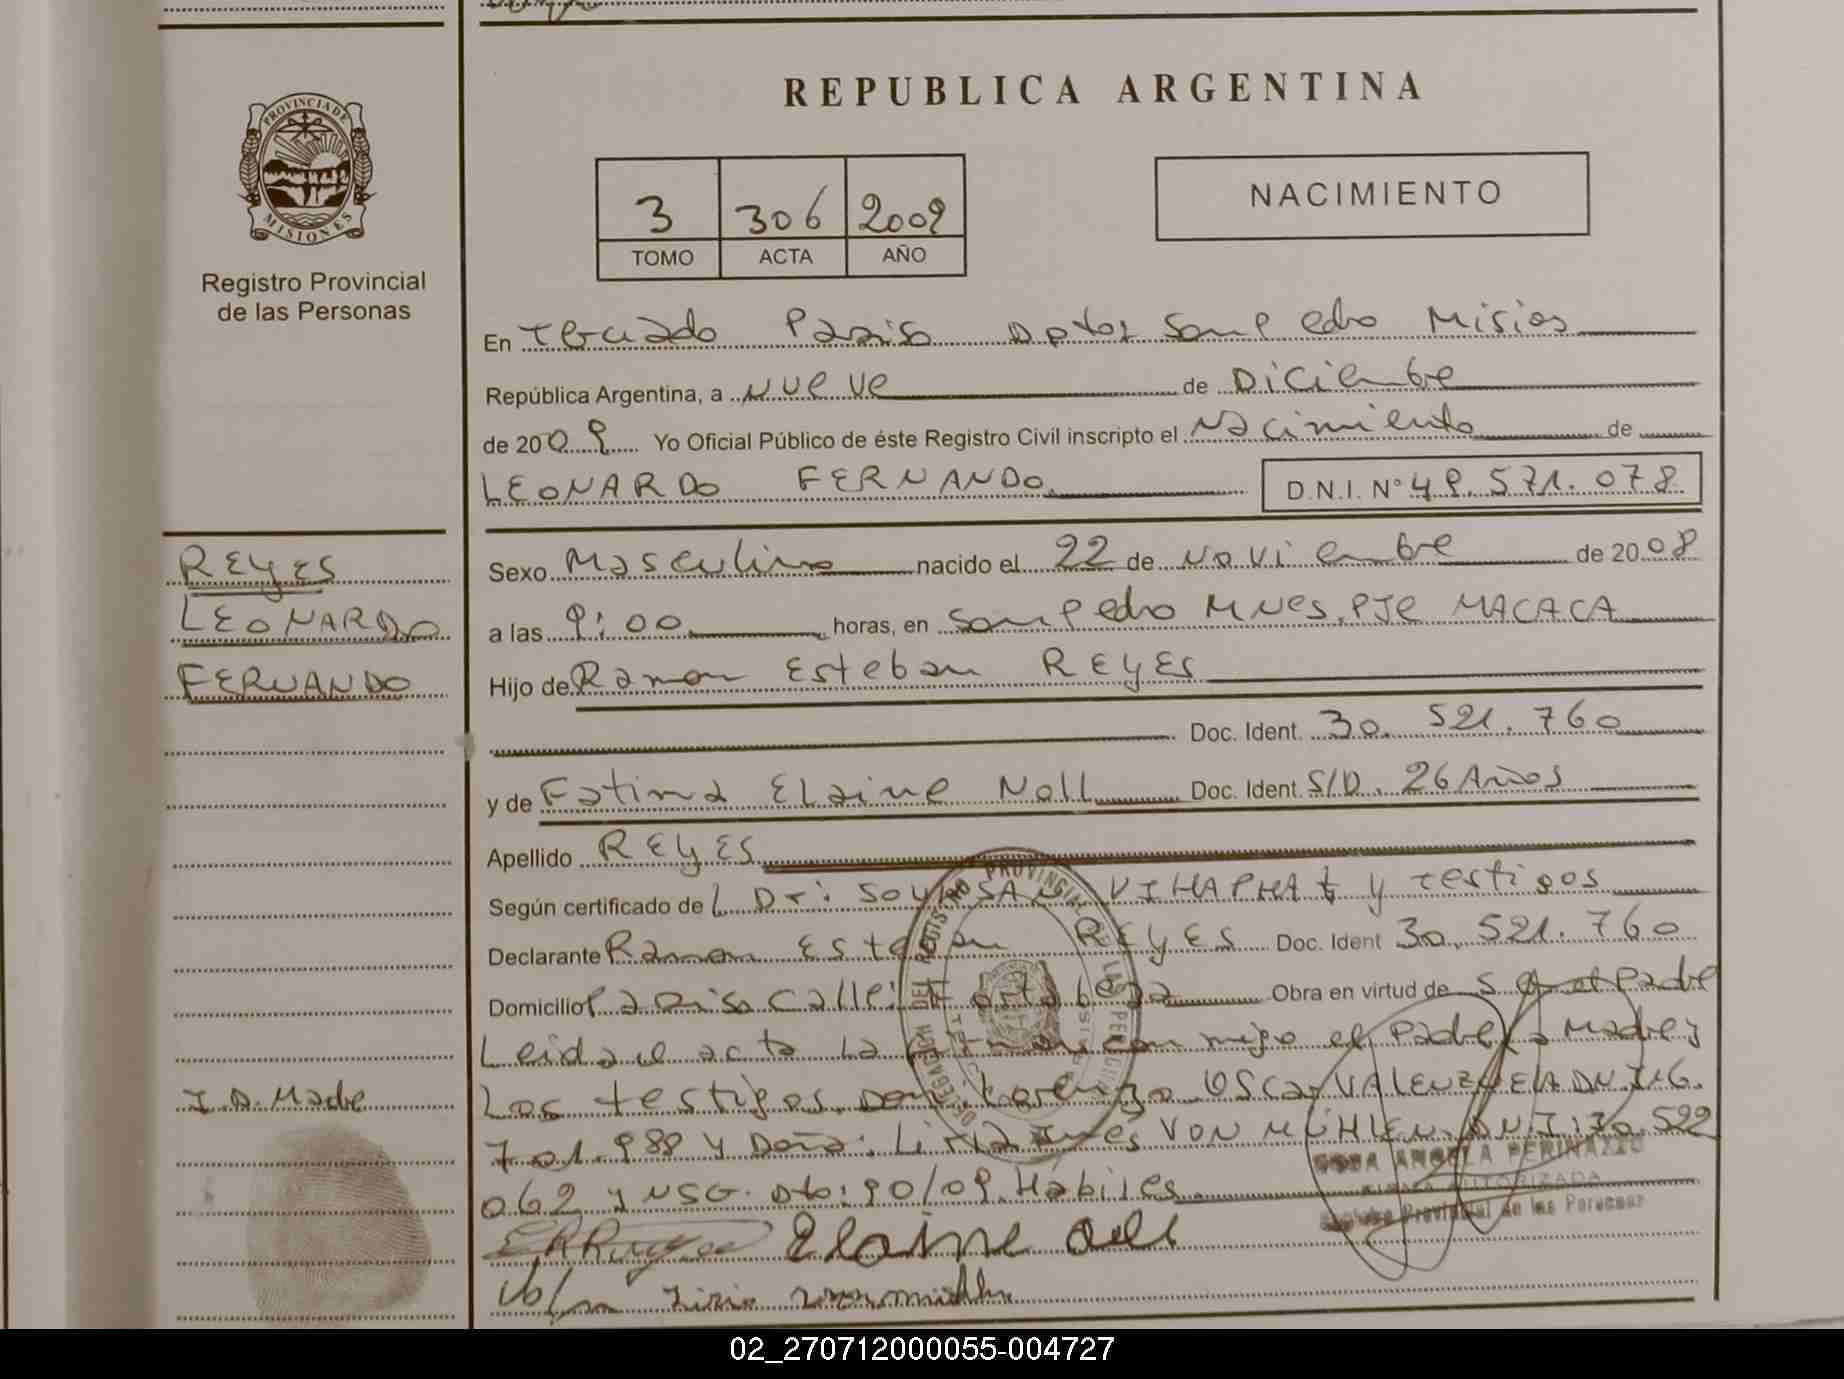 REPUBLICA ARGENTINA
PROVINCIA DE
MISIONES
Registro Provincial
de las Personas
3 306 2009
TOMO ACTA AÑO
NACIMIENTO
En Terciado Paraiso Dptos San Pedro Misios
República Argentina, a Nueve de Diciembre
de 2009 Yo Oficial Público de éste Registro Civil inscripto el Nacimiento de
LEONARDO FERNANDO D.N.I. Nº 49.571.078
REYES
LEONARDO
FERNANDO
Sexo Masculino nacido el 22 de Noviembre de 2008
a las 9:00 horas, en San Pedro Mnes. Pje MACACA
Hijo de Ramon Esteban REYES
Doc. Ident. 30.521.760
y de Fatima Elaine Noll Doc. Ident. S/D. 26 Años
Apellido REYES
Según certificado de L Dr: y testigos
Declarante Ramon Esteban REYES Doc. Ident 30.521.760
Domicilio Paraiso Calle: Obra en virtud de S el Padre
Leida el acta la firman con migo el Padre la Madre y
Los testigos Don: Lorenzo Oscar VALENZUELA DNI
701.988 y Doña: Liria Inés VON MÜHLEN. DNI: 30.522
062 y NSG. Dto: 90/09. Hábiles
I.D. Madre
Elaine
ANGELA PERINAZZO
FIRMA AUTORIZADA
Registro Provincial de las Personas
02_270712000055-004727